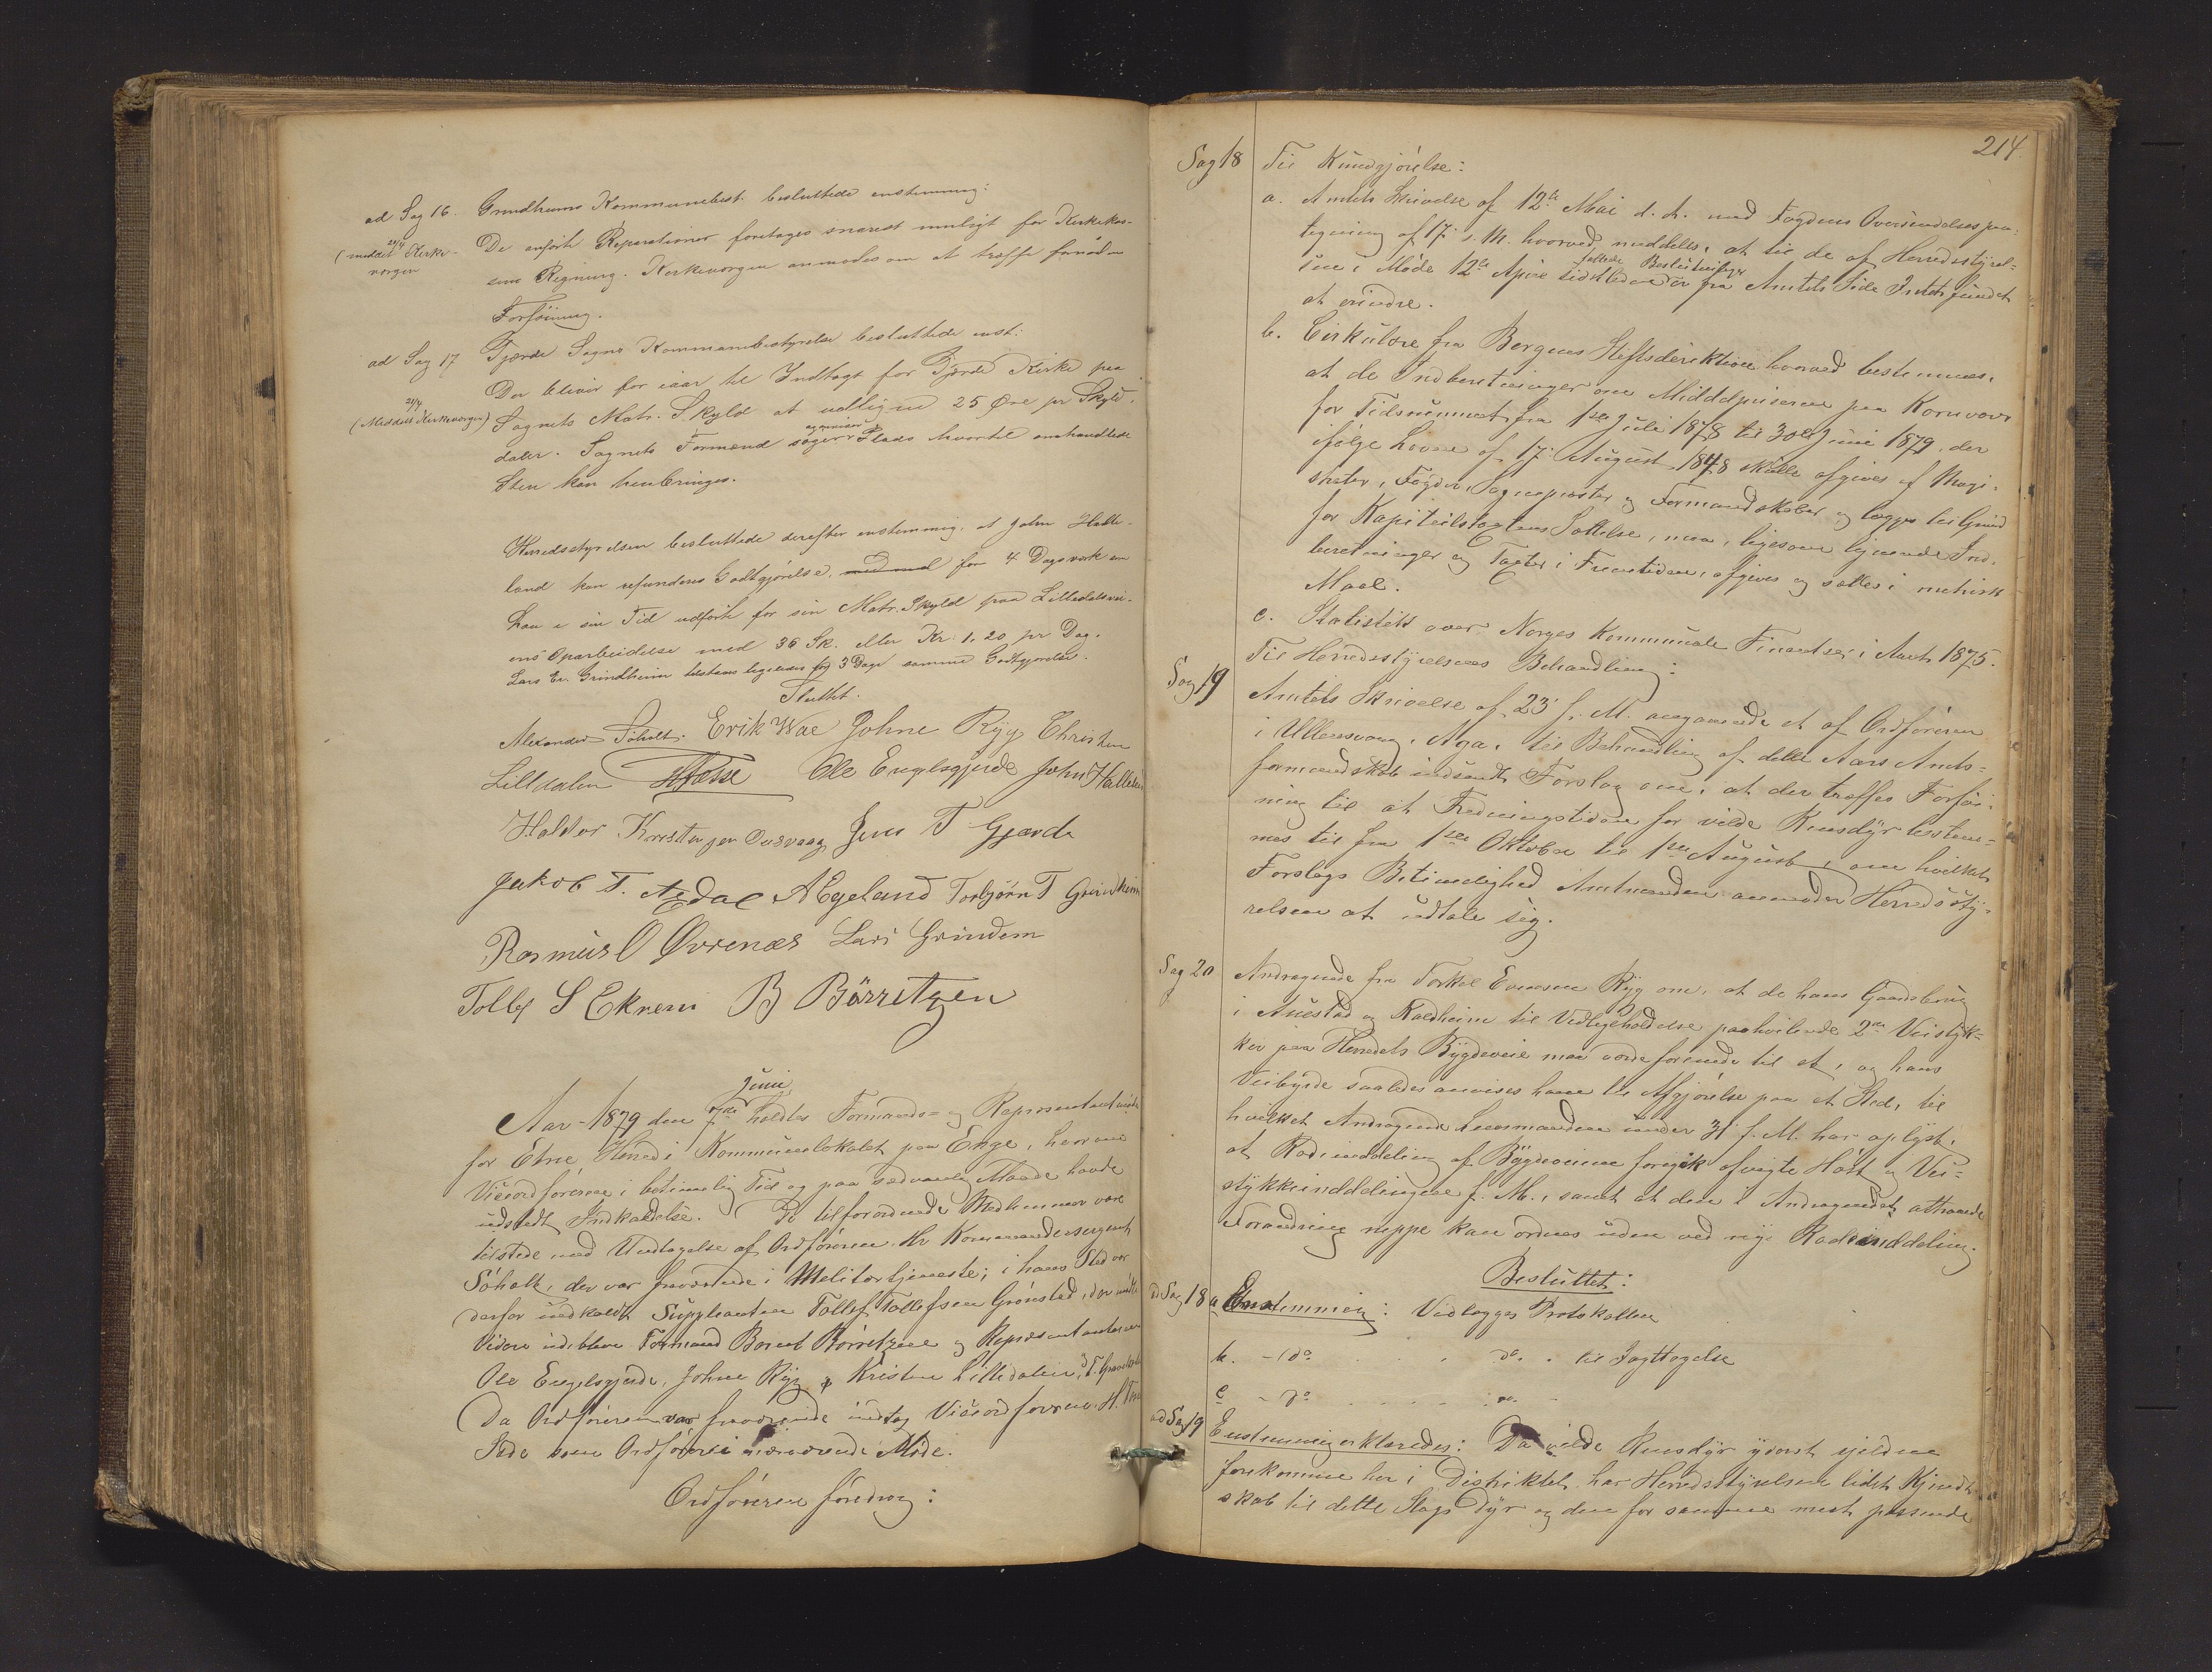 ad Sag 16. Grindheims Kommunebest. besluttede enstemmig:
(meddelt 24/4 Kirke-
vergen
De anførte Reparationer foretages snarest muligt for Kirkekas-
sens Regning. Kirkevergen anmodes om at træffe fornøden
Forføining.
ad Sag 17 Gjerde Sogns Kommunebestyrelse besluttede enst:
Der bliver for iaar til Indtægt for Gjerde Kirke paa
21/4
(Meddelt Kirkevergen)
Sognets Matr. Skyld at udligne 25 Øre pr Skyld-
daler. Sognets Formænd søger Plads hvortil omhandlede
Sten kan henbringes.
Herredsstyrelsen besluttede derefter enstemmig, at John Halle-
land kan refunderes Godtgjørelse, for 4 Dagsverk som
han i sin Tid udførte for sin Matr. Skyld paa Lilledalsvei-
ens Oparbeidelse med 36 Sk. eller Kr. 1,20 pr Dag.
Lars Er. Grindheim tilstaaes ligeledes for 3 Dage samme Godtgjørelse.
Sluttet.
Alexander Søholt. Erik Wae Johne Ryg Christen
Lilldalen HTesse Ole Engelsgjerde John Hallelan
Haldor Kristensen Ousvaag Jens T Gjerde
Jakob T. Aedal A Egeland Torbjørn T Grindheim
Rasmus O Øvrenæs Lars Grindem
Tollef S Ekrem B Børretzen
Juni
Aar 1879 den 7de holdtes Formands- og Repræsentantmøde
for Etne Herred i Kommunelokalet paa Enge, hvorom
Viceordføreren i betimelig Tid og paa sædvanlig Maade havde
udstedt Indkaldelse. De tilforordnede Medlemmer vare
tilstede med Undtagelse af Ordføreren Hr Kommandersergent
Søholt, der var fraværende i Militærtjeneste; i hans Sted var
derfor indkaldt Suppleanten Tollef Tollefsen Grønstad, der mødte
Videre udebleve Formand Berent Børretzen og Repræsentanterne
Ole Engelsgjerde, Johne Ryg, Kristen Lilledalen,
Da Ordføreren var fraværende indtog Viceordføreren H. Tesse
Sæde som Ordfører i nærværende Møde.
Ordføreren foredrog:
214.
Sag 18 Til Kundgjørelse:
a. Amtets Skrivelse af 12te Mai d. A. med Fogdens Oversendelsespaa-
tegning af 17. s. M. hvorved meddeles, at til de af Herredsstyrel-
fattede Beslutninger
sen i Møde 12te April sidstleden er fra Amtets Side Intet fundet
at erindre.
b. Cirkulære fra Bergens Stiftsdirektion hvorved bestemmes,
at de Indberetninger om Middelpriserne paa Kornvarer
for Tidsrummet fra 1ste Juli 1878 til 30te Juni 1879, der
ifølge Loven af 17. August 1848 skulle afgives af Magi-
strater, Fogder, Sogneprester og Formandskaber og lægges til Grund
for Kapitelstaxtens Sættelse, maa, ligesom lignende Ind-
beretninger og Taxter i Fremtiden, afgives og sættes i metrisk
Maal.
c. Statistik over Norges kommunale Finantser i Aaret 1875.
Sag 19 Til Herredsstyrelsens Behandling:
Amtets Skrivelse af 23 f. M. angaaende et af Ordføreren
i Ullensvang, Aga, til Behandling af dette Aars Amts-
formandskab indsendt Forslag om, at der træffes Forføi-
ning til at Fredningstiden for vilde Rensdyr bestem-
mes til fra 1ste Oktober til 1ste August, om hvilket
Forslags Betimelighed Amtmanden anmoder Herredssty-
relsen at udtale sig.
Sag 20 Andragende fra Torkel Ryg om, at de hans Gaardsbrug
i Austad og Kaldheim til Vedligeholdelse paahvilende 2de Veistyk-
ker paa Herredets Bygdeveie maa vorde forenede til et, og hans
Veibyrde saaledes anvises ham til Afgjørelse paa et Sted, til
hvilket Andragende Lensmanden under 31 f. M. har oplyst,
at Rodeinddeling af Bygdeveiene foregik afvigte Høst og Vei-
stykkeinddelingen f. M., samt at den i Andragendet attraaede
Forandring neppe kan ordnes uden ved ny Rodeinddeling.
Besluttet:
ad Sag 18 a Enstemmig: Vedlægges Protokollen
b. - do do. til Iagttagelse
c - do do.
ad Sag 19 Enstemmig erklæredes: Da vilde Rensdyr yderst sjelden
forekomme her i Distriktet, har Herredsstyrelsen lidet Kjendt-
skab til dette Slags Dyr og den for samme mest passende